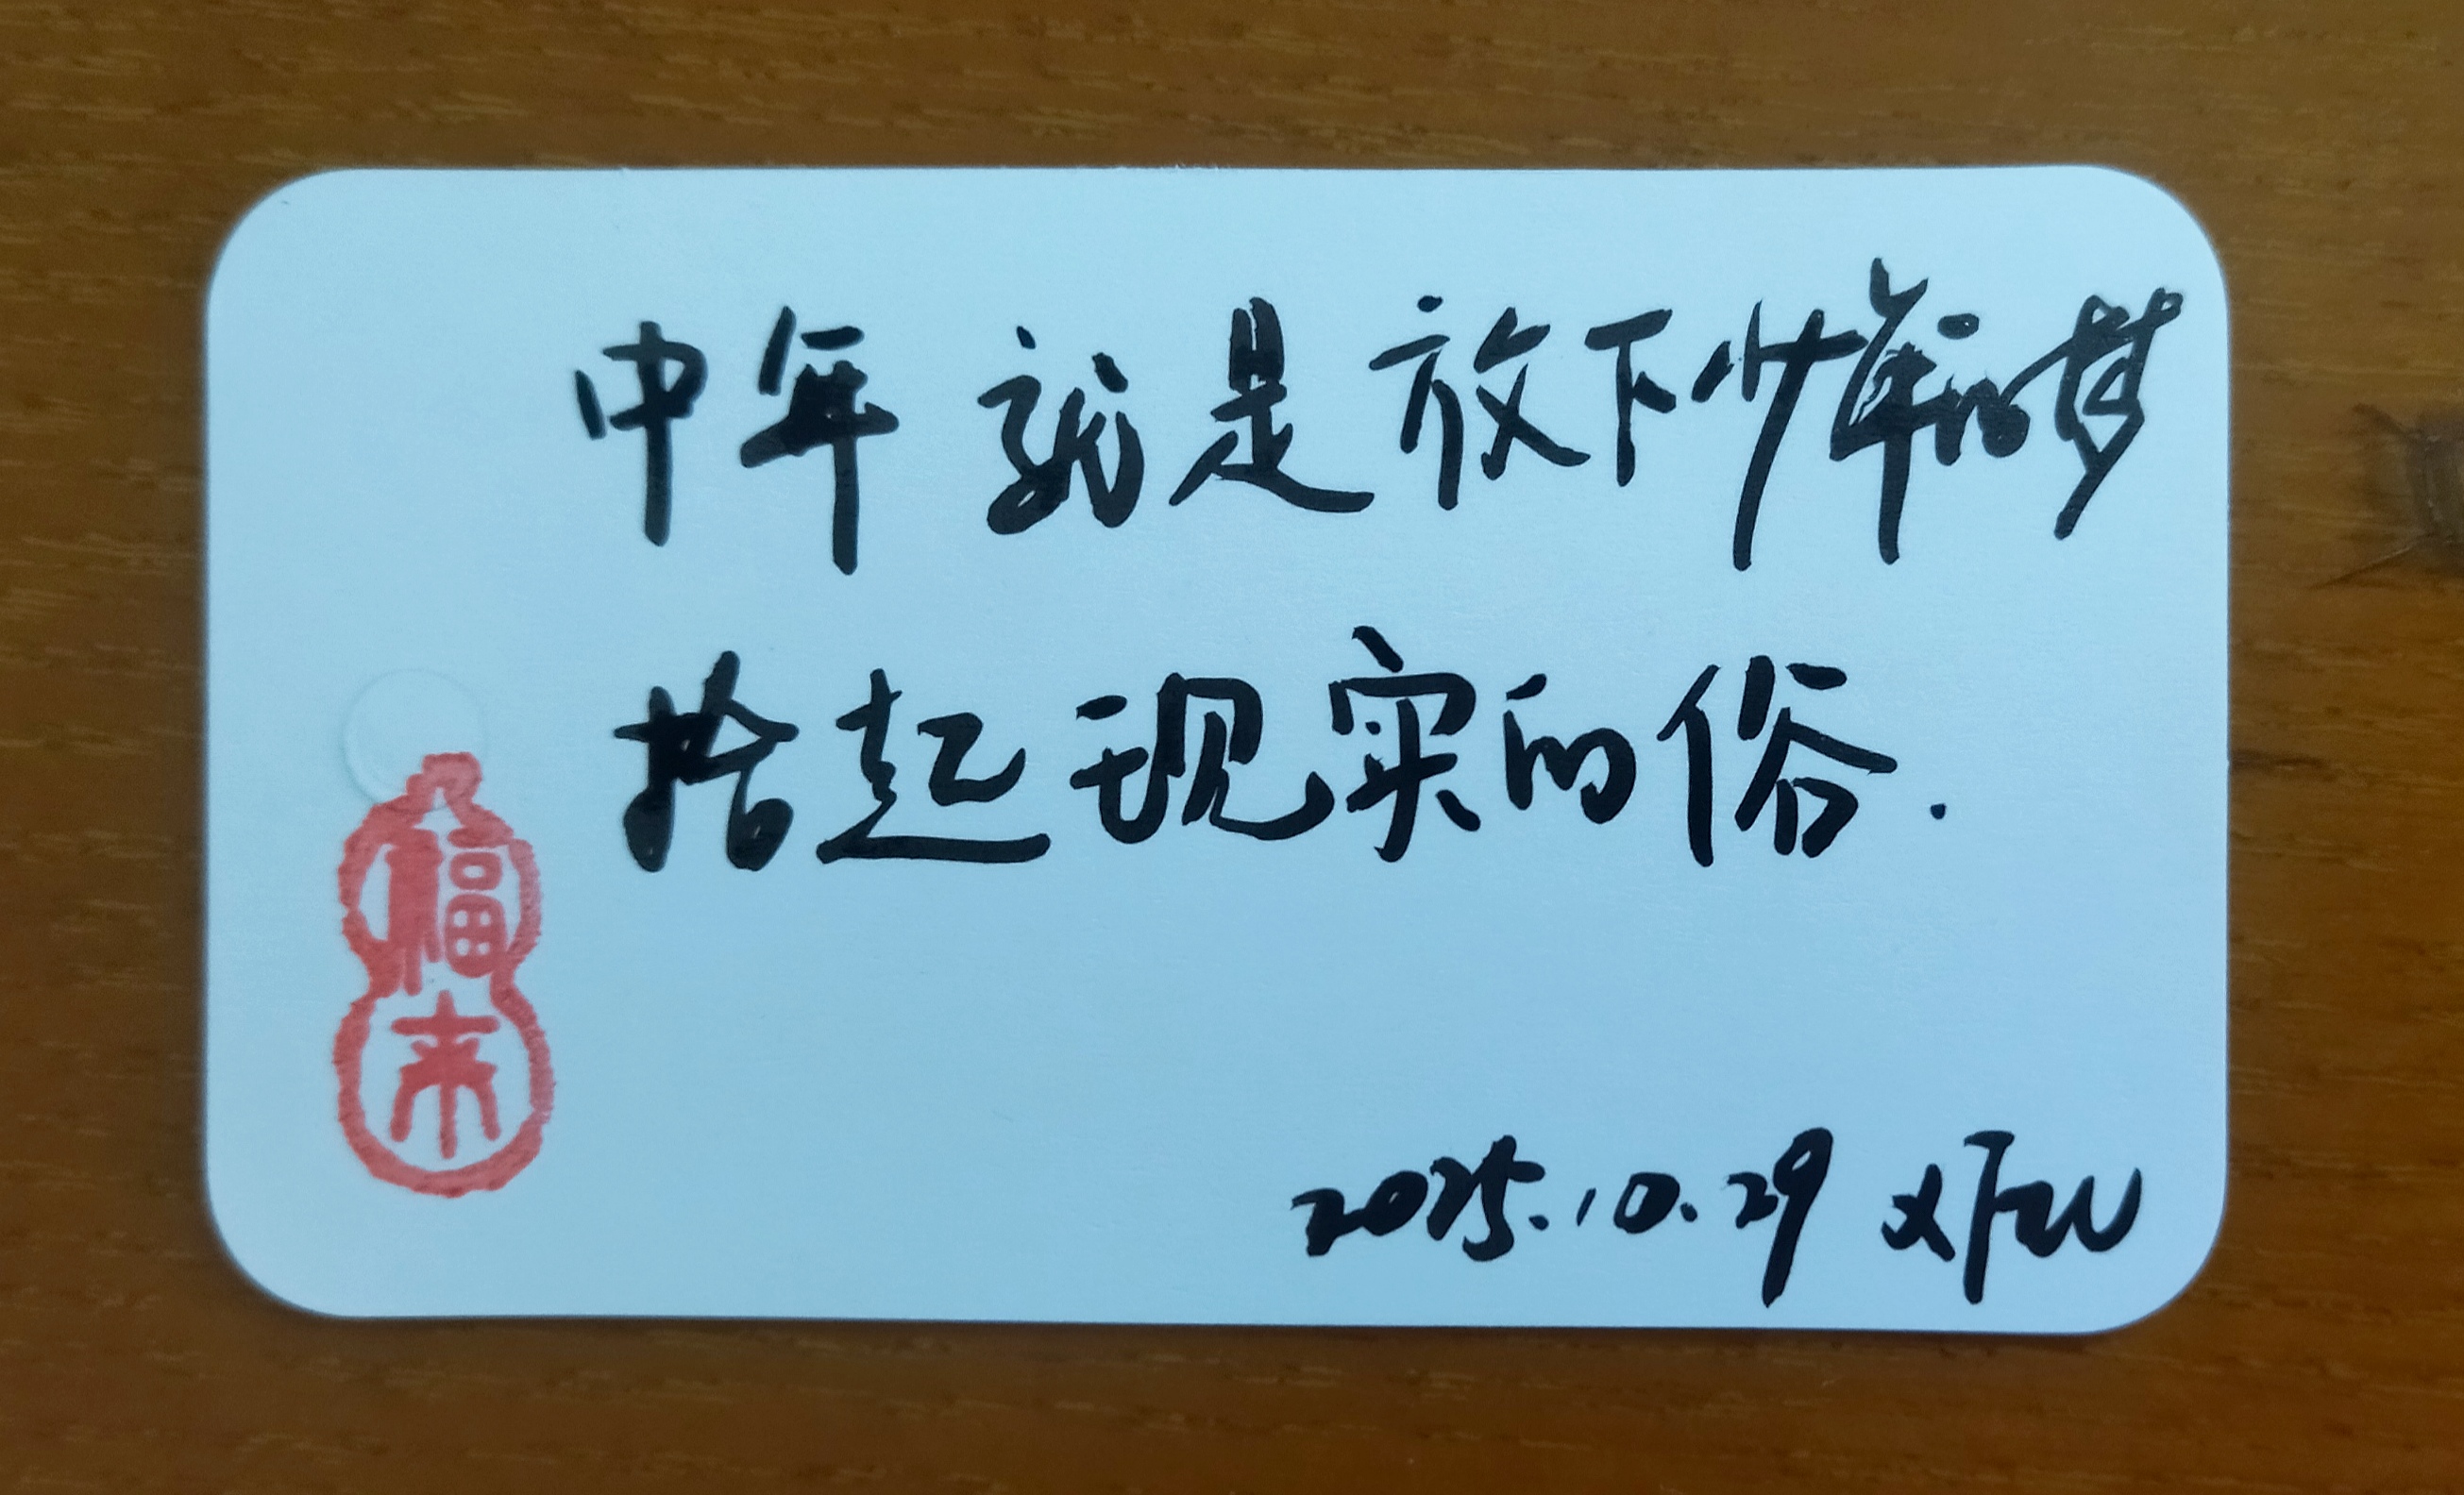 中年就是放下少年的梦
拾起现实的俗.
福
来
2025.10.29